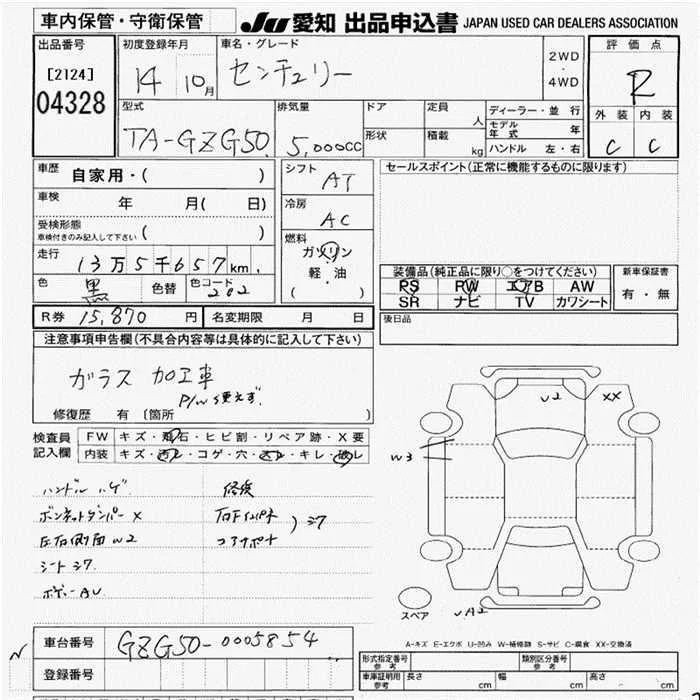 車内保管・守衛保管
JU 愛知 出品申込書 JAPAN USED CAR DEALERS ASSOCIATION
出品番号
[2124]
04328
初度登録年月
14 10月
車名・グレード
センチュリー
2WD
・
4WD
評価点
R
外装 内装
C C
型式
TA-GZG50
排気量
5,000CC
ドア
形状
定員 人
積載 kg
ディーラー・並行
モデル年式 年
ハンドル 左・右
車歴 自家用・( )
車検 年 月( 日)
受検形態
車検付きのみ記入して下さい ( )
走行 13万5千657km
色 黒 色替 色コード 202
シフト AT
冷房 AC
燃料
ガソリン
軽・油
( )
セールスポイント(正常に機能するものに限ります)
装備品(純正品に限り○をつけてください)
PS PW エアB AW
SR ナビ TV カワシート
新車保証書
有・無
R券 15,870円 名変期限 月 日
後日品
注意事項申告欄(不具合内容等は具体的に記入して下さい)
ガラス 加工車
P/W使えず.
修復歴 有 〔箇所 〕
検査員記入欄
FW キズ・飛石・ヒビ割・リペア跡・X要
内装 キズ・汚れ・コゲ・穴・スレ・キレ・破レ
ハンドル ハゲ
ボンネットダンパーX
左右側面W2
シートシワ
ボディーAU
修復
右Fインパネ
コアサポート
)シワ
V2
XX
W3
スペア
VA2
A-キズ E-エクボ U-凹み W-補修跡 S-サビ C-腐食 XX-交換済
車台番号 GZG50-0005854
登録番号
形式指定番号 参考
類別区分番号 参考
車庫証明用 参考 長さ cm 幅 cm 高さ cm